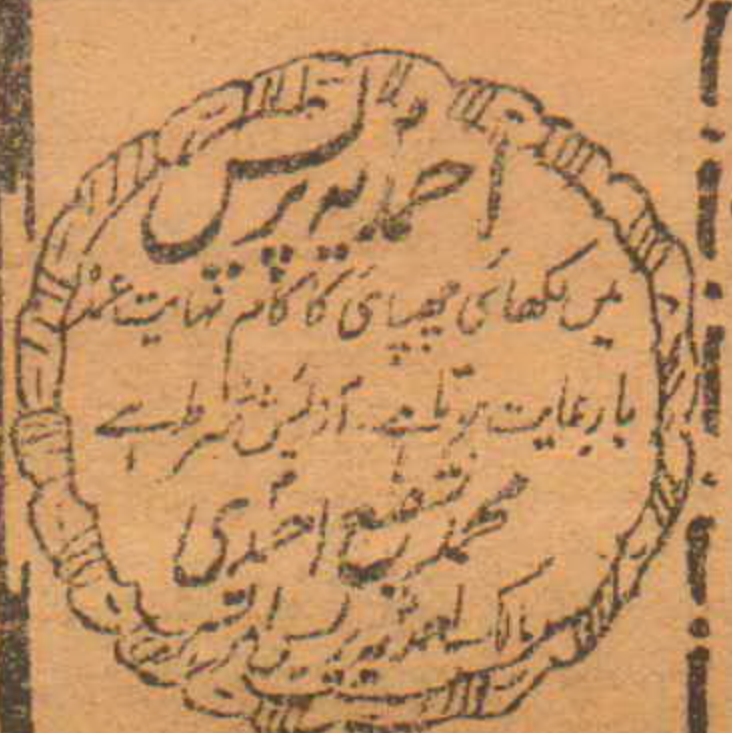 احمدیہ پریس
میں لکھائی چھپائی کا کام نہایت عمدہ
بارعایت ہوتا ہے۔ آزمایش شرط ہے
محمد شفیع احمدی
مالک احمدیہ پریس امرتسر